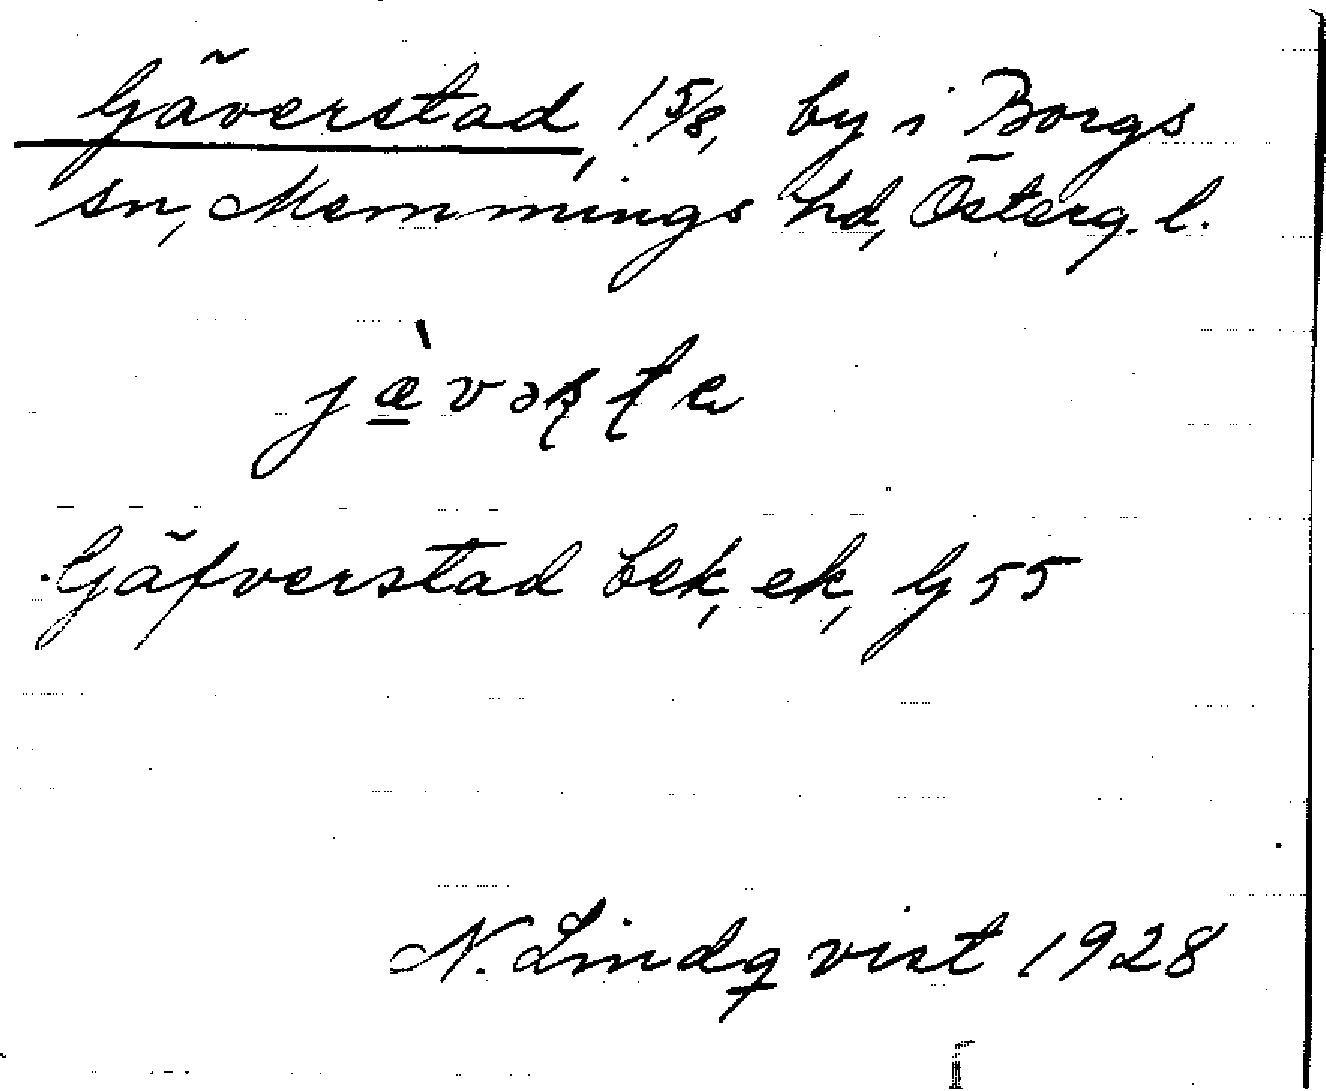 Gäverstad, 1 5/8, by i Borgs
sn, Memmings hd, Österg. l.
jæ̀vəʂʈa
Gäfverstad bek, ek, G 55
N. Lindqvist 1928